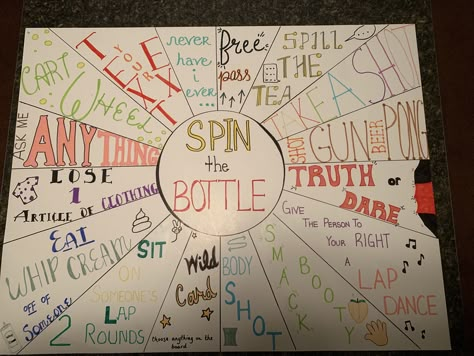 SPIN
the
BOTTLE
free
pass
SPILL
THE
TEA
TAKE A SHOT
SHOT
GUN
BEER
PONG
TRUTH or
DARE
GIVE
THE PERSON TO
YOUR RIGHT
A
LAP
DANCE
SMACK
BOOTY
BODY
SHOT
Wild
Card
choose anything on the
board.
SIT
ON
SOMEONE'S
LAP
2
ROUNDS
EAT
WHIP CREAM
OFF OF
Someone
LOSE
1
ARTICLE OF CLOTHING
ASK ME
ANYTHING
CART
WHEEL
TEXT
YOUR
EX
never
have
i
ever...